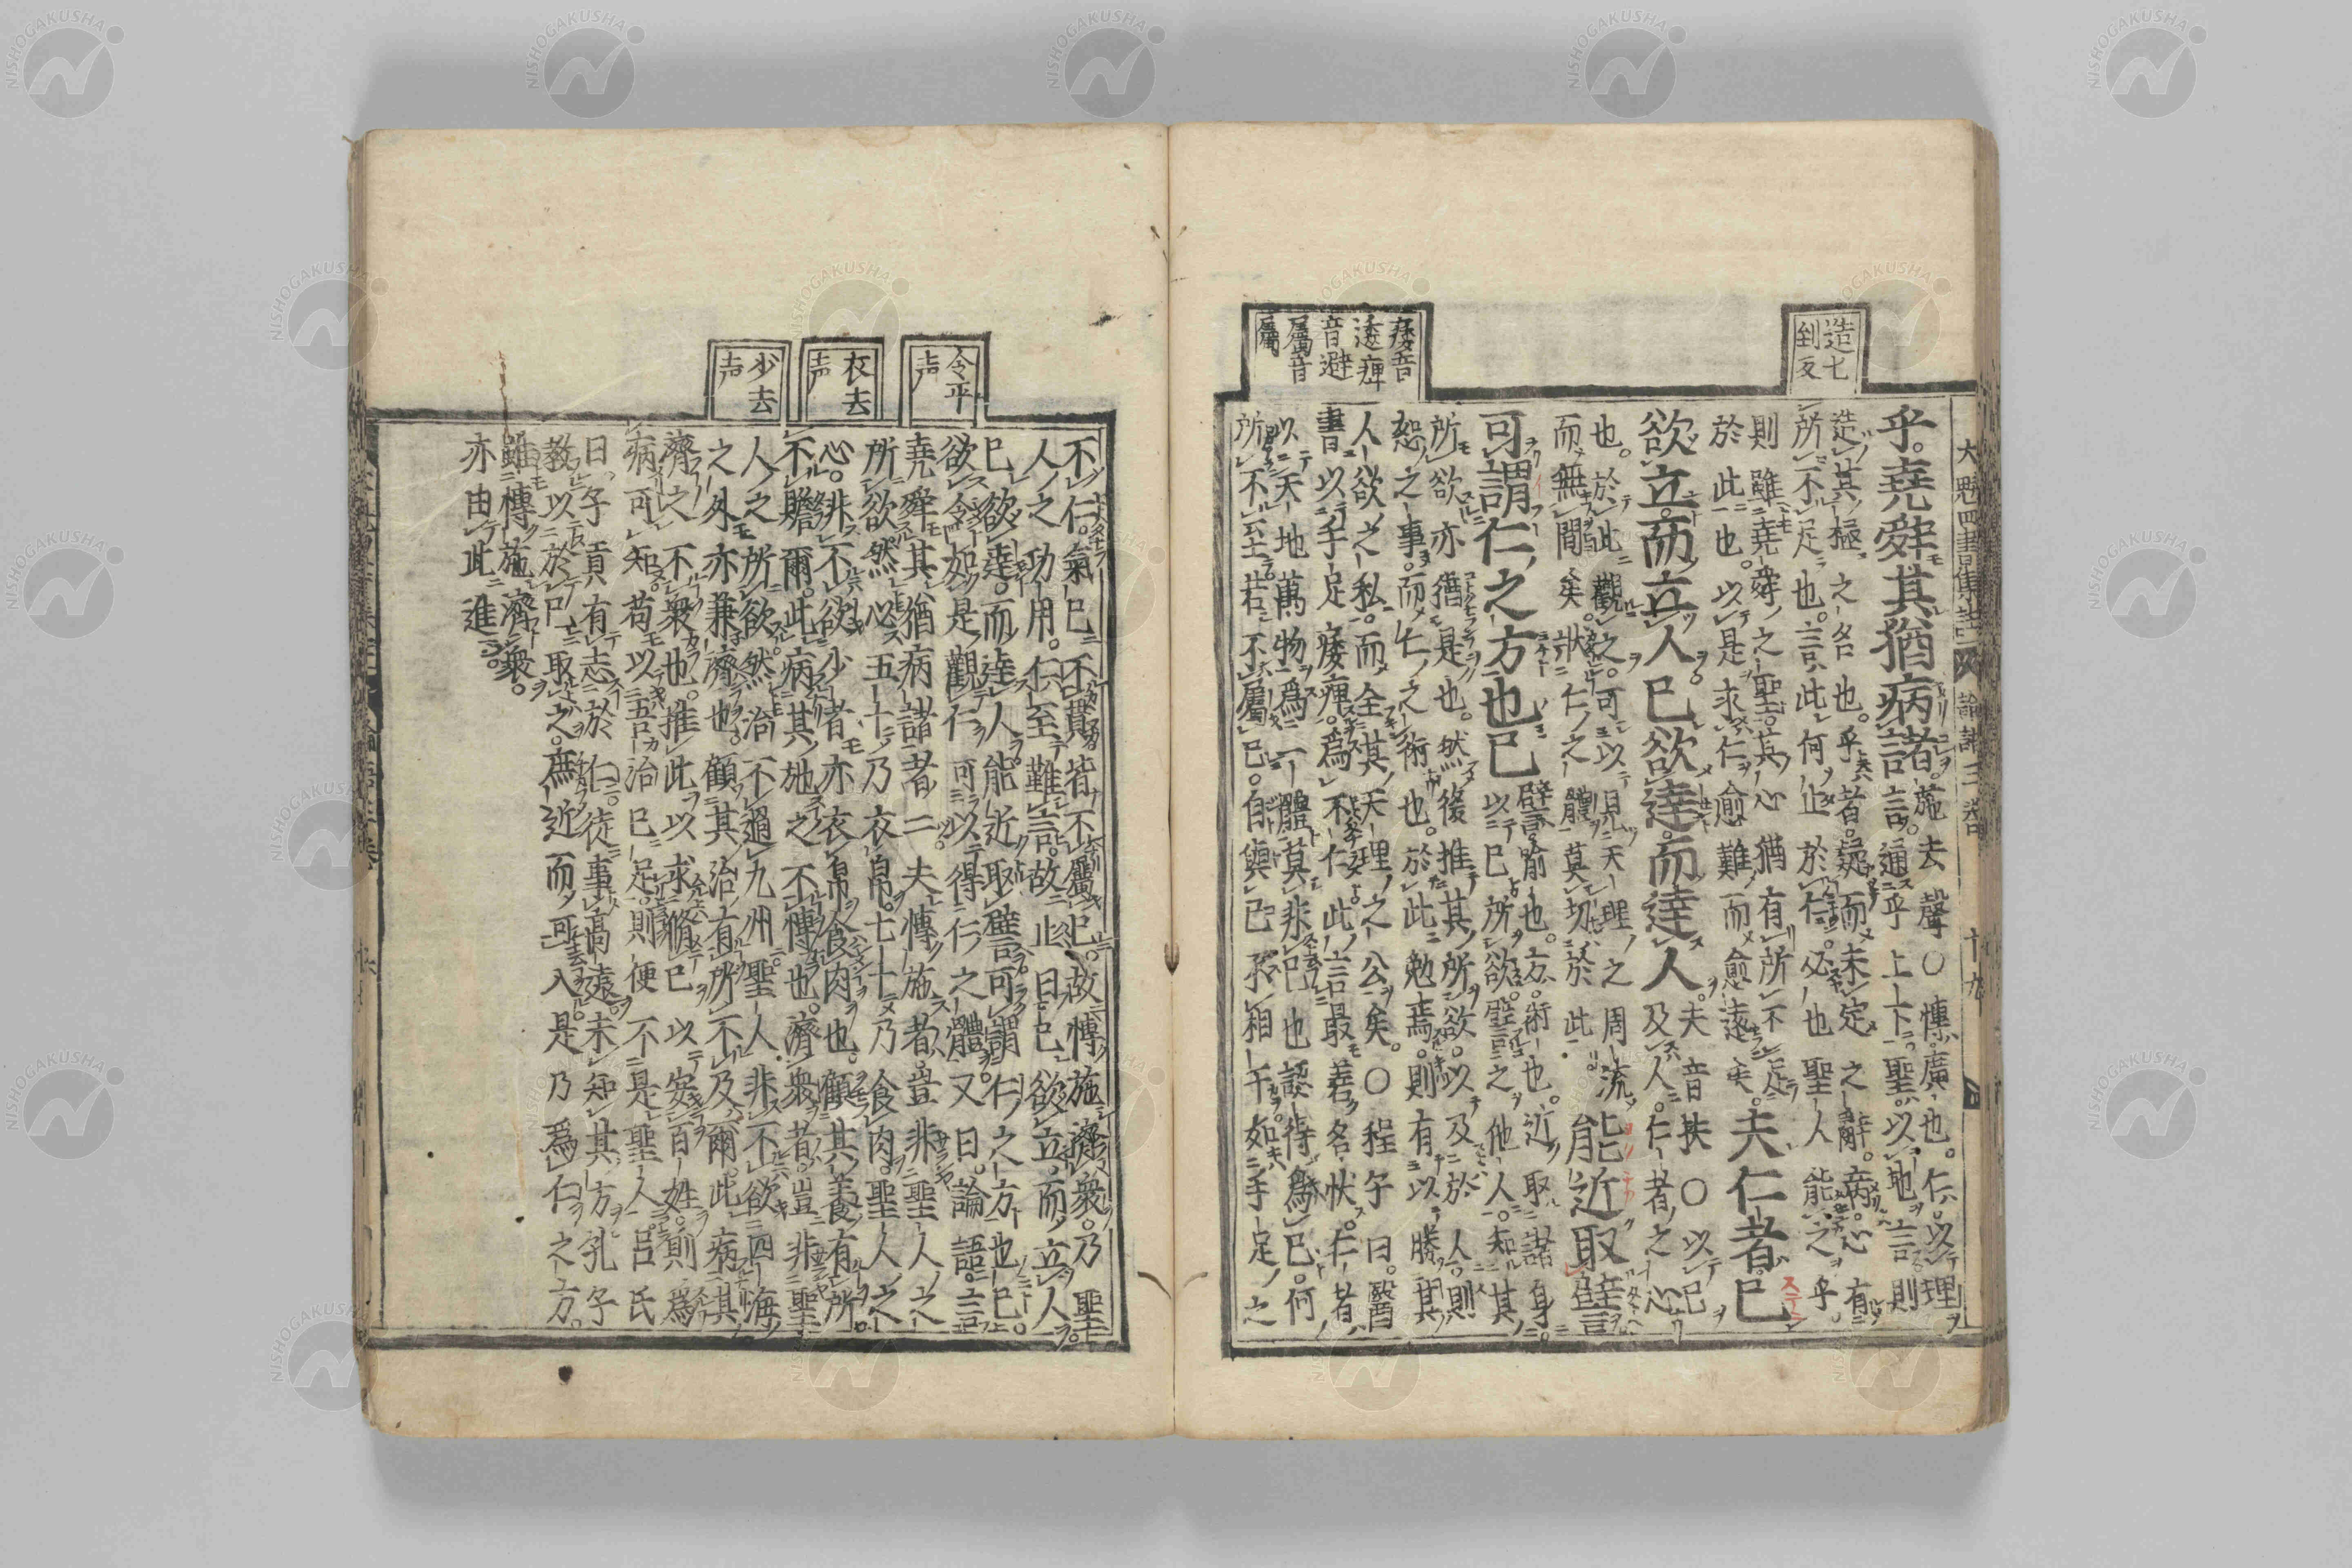 大魁四書集註 論語三卷 十九
造七
到反
痿音
透痺
音避
屬音
屬
乎。堯舜其猶病諸。
施去聲○博。廣也。仁。以理
言。通乎上下。聖。以地言則
造其極之名也。乎者。疑而未定之辭。病。心有
所不足也。言此何止於仁。必也聖人能之乎。
則雖堯舜之聖。其心猶有所不足
於此也。以是求仁。愈難而愈遠矣。
夫仁者己
欲立而立人。己欲達而達人。
夫音扶○以己
及人。仁者之心
也。於此觀之。可以見天理之周流
而無間矣。狀仁之體莫切於此。
能近取譬
可謂仁之方也已
譬喻也。方術也。近取諸身。
以己所欲。譬之他人。知其
所欲亦猶是也。然後推其所欲。以及於人。則
恕之事。而仁之術也。於此勉焉。則有以勝其
人欲之私。而全其天理之公矣。○程子曰。醫
書以手足痿痺。爲不仁。此言最善名狀。仁者
以天地萬物爲一體。莫非己也。認得爲己。何
所不至。若不屬己。自與己不相干。如手足之
令平
声
衣去
声
少去
声
不仁。氣已不貫。皆不屬己。故博施濟衆。乃聖
人之功用。仁至難言。故止曰。己欲立而立人。
己欲達。而達人。能近取譬。可謂仁之方也已。
欲令如是觀仁。可以得仁之體。又曰。論語言
堯舜其猶病諸者二。夫博施者。豈非聖人之
所欲。然必五十乃衣帛。七十乃食肉。聖人之
心。非不欲少者亦衣帛食肉也。顧其養有所
不贍爾。此病其施之不博也。濟衆者。豈非聖
人之所欲。然治不過九州。聖人非不欲四海
之外亦兼濟也。顧其治有所不及爾。此病其
濟之不衆也。推此以求。脩己以安百姓。則爲
病可知。苟以吾治已足。則便不是聖人。呂氏
曰。子貢有志於仁。徒事高遠。未知其方。孔子
教以於己取之。庶近而可入。是乃爲仁之方。
雖博施濟衆。
亦由此進。